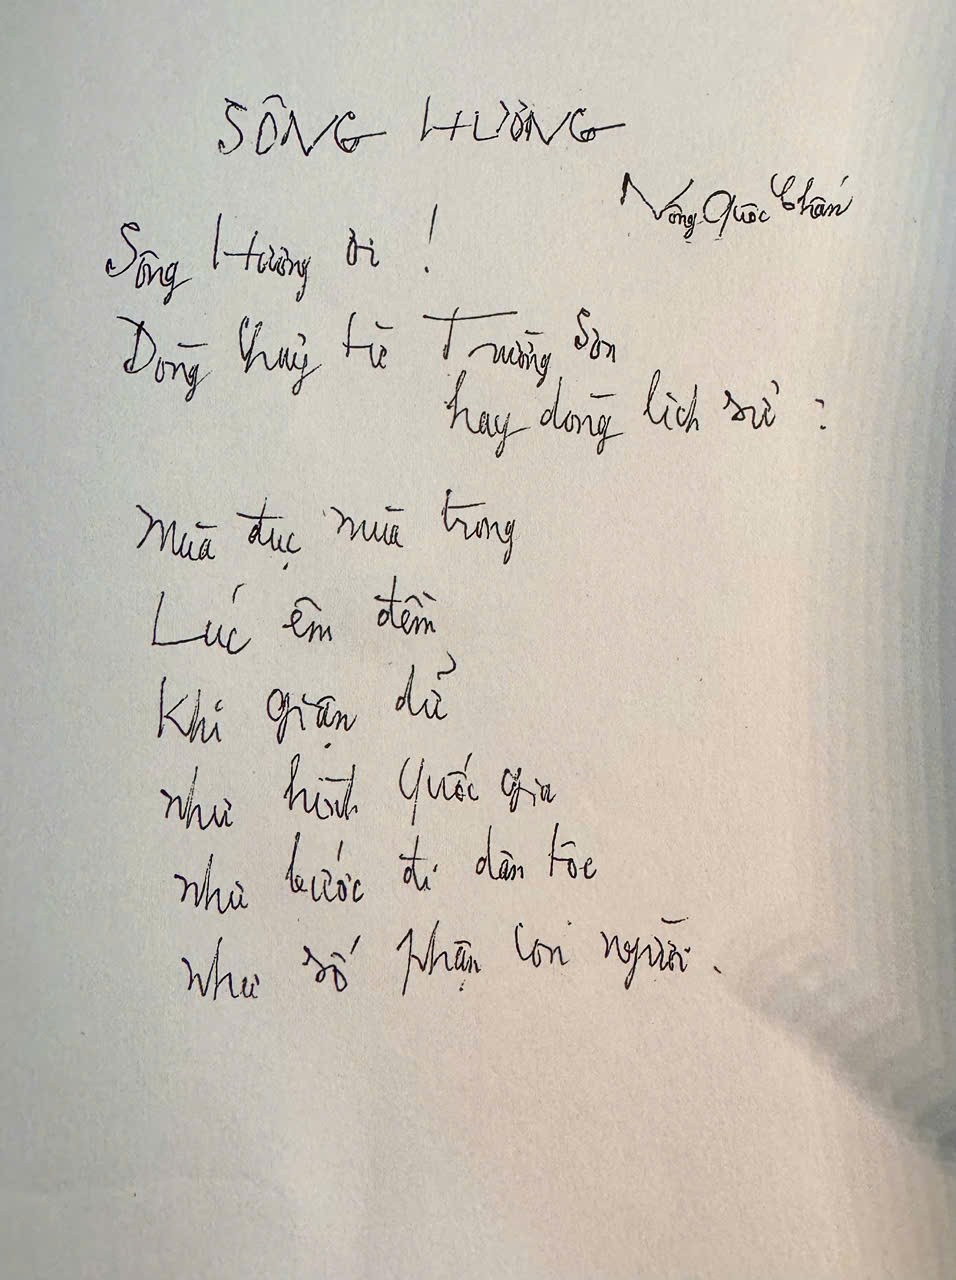 SÔNG HƯƠNG
Nông Quốc Chấn
Sông Hương ơi !
Dòng chảy từ Trường Sơn
hay dòng lịch sử :
Mùa đục mùa trong
Lúc êm đềm
Khi giận dữ
như hình quốc gia
như bước đi dân tộc
như số phận con người.